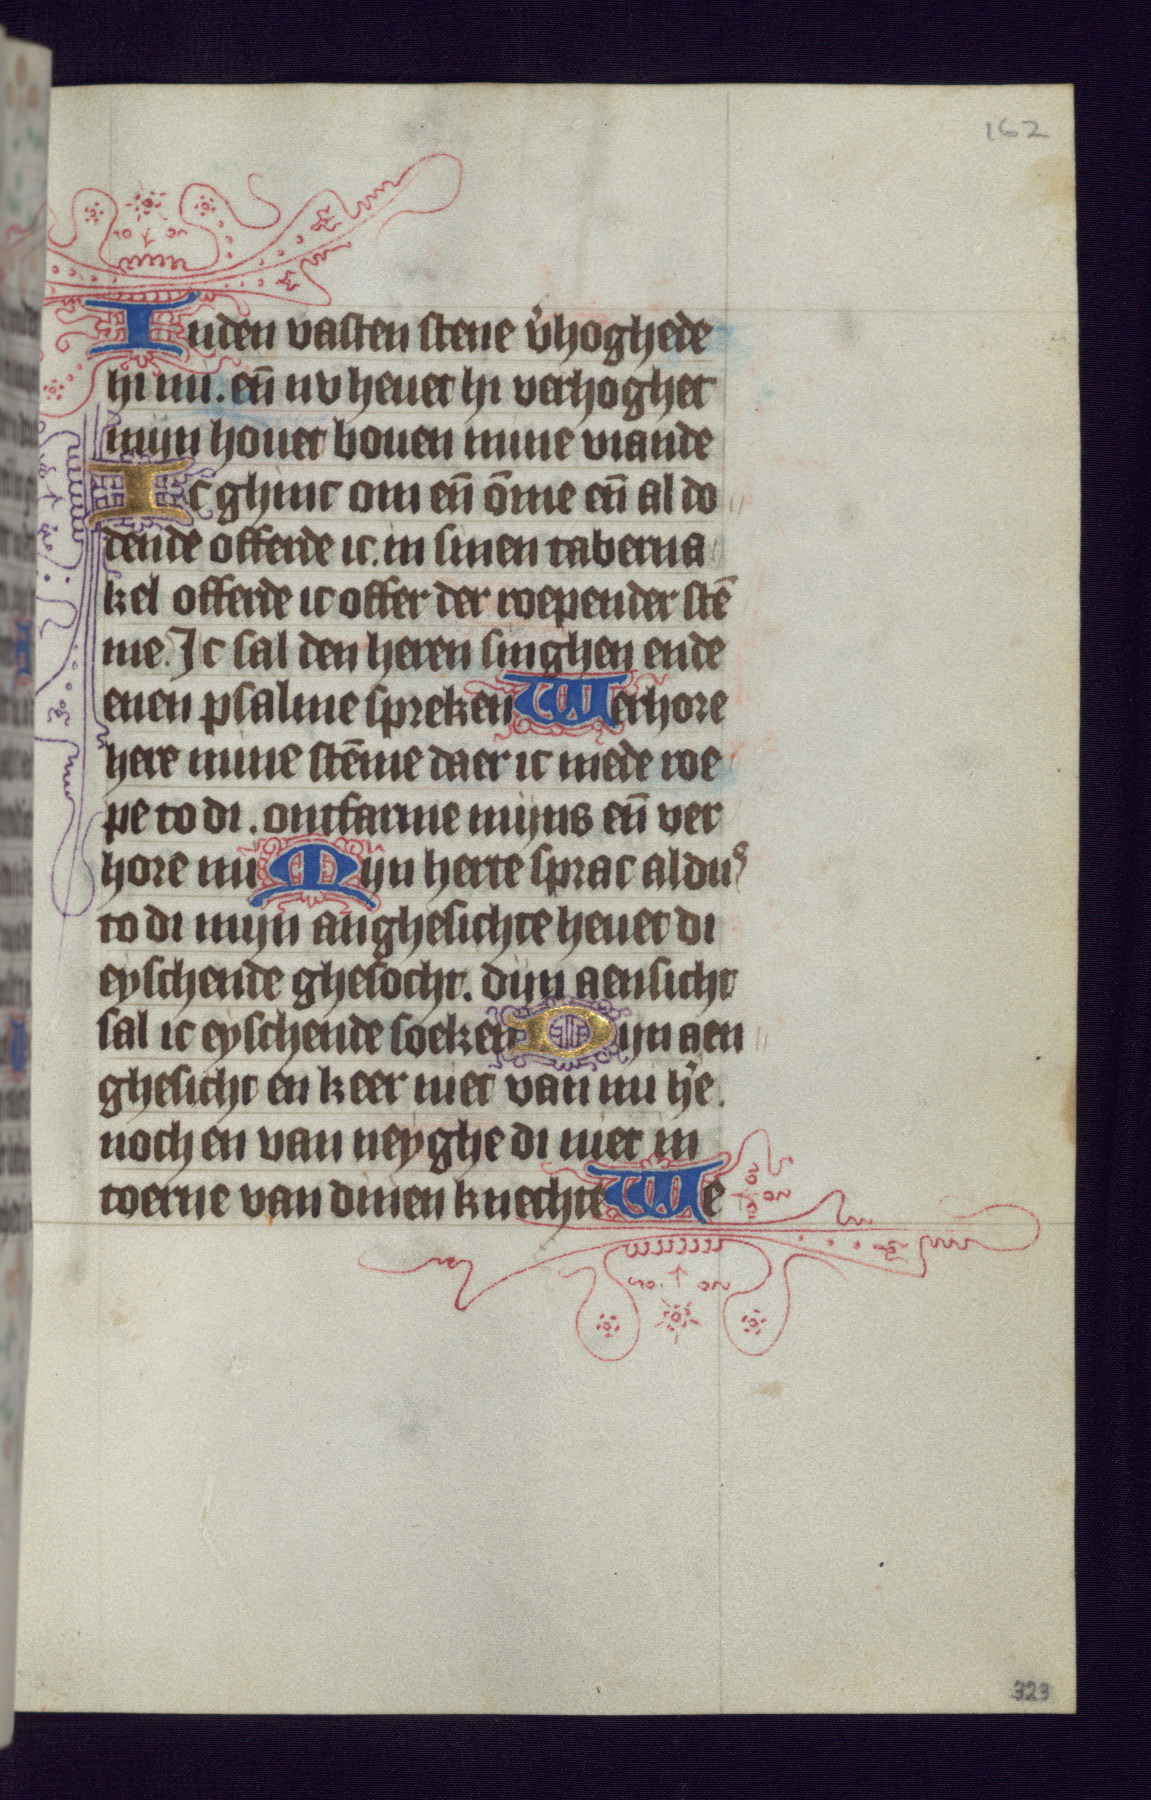 162
Inden vasten stene v̉hoghede
hi mi. en̄ nv heuet hi verhoghet
mijn houet bouen mine viande
Ic ghinc om en̄ ōme en̄ al do
dende offerde ic. in sinen taberna
kel offerde ic offer der roepender stē
me. Ic sal den heren singhen ende
enen psalme spreken Werhore
here mine stēme daer ic mede roe
pe to di. ontfarme mijns en̄ ver
hore mi Mijn herte sprac aldus
to di mijn anghesichte heuet di
eyschende ghesocht. dijn aensicht
sal ic eyschende soeken Dijn aen
ghesicht en keer niet van mi he̓.
noch en van neyghe di niet in
toerne van dinen knechte We
323